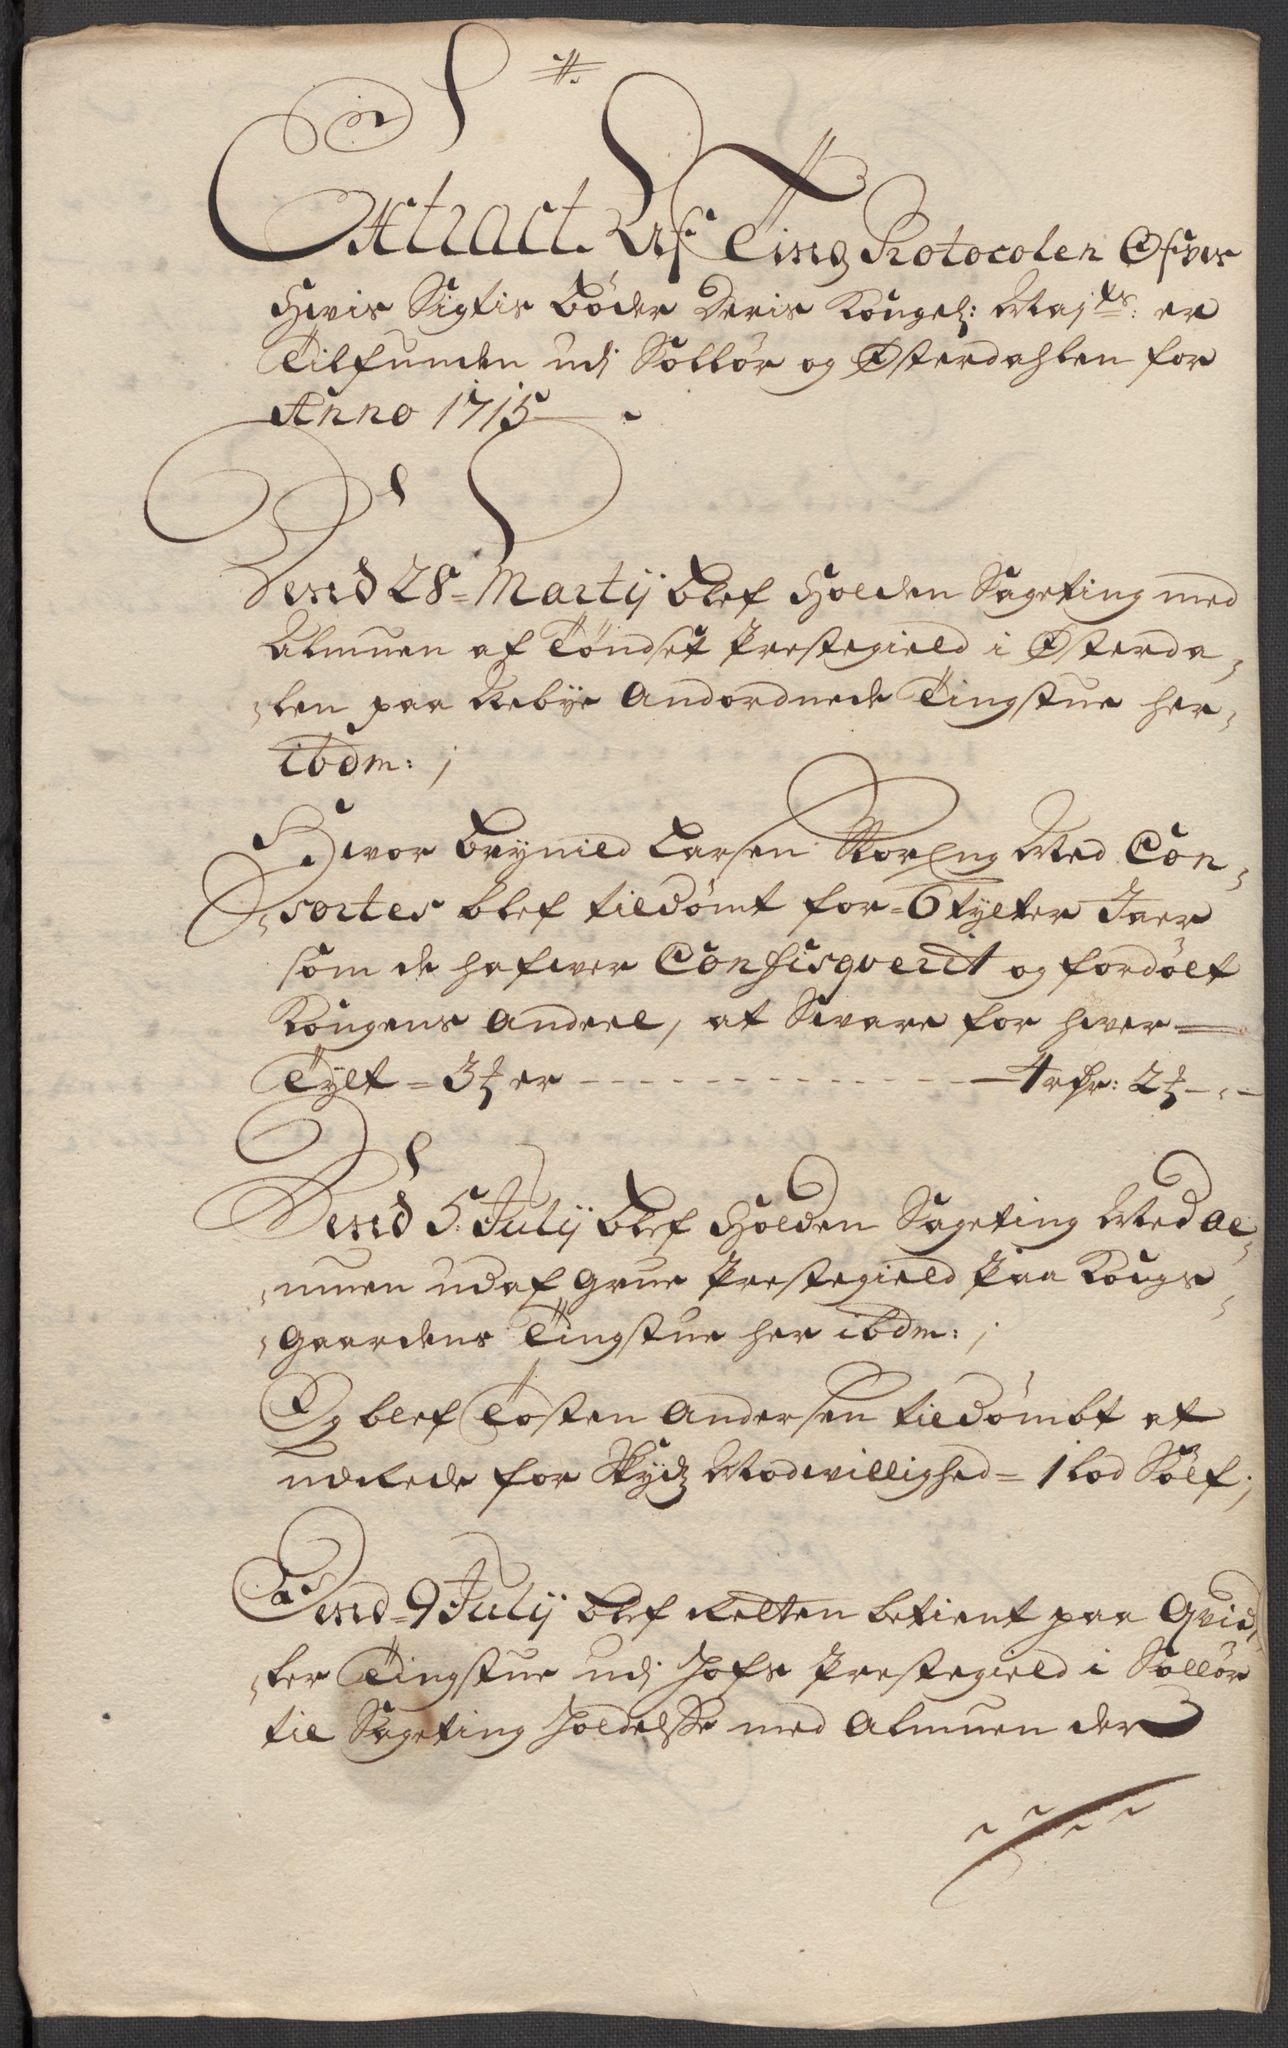 Extract Af Ting Protocolen Ofver
Hvis Sigtis Bøder Deris Kongel: Maj:ts: er
Tilfunden udj Sollør og Østerdahlen for
Anno 1715
Dend 28 = Martij blef Holden Sageting med
Almuen af Tøndset Prestegield i Østerda,,
,,len paa Nebye Andordnede Tingstue her,,
ibdm: ;
Hvor Brynild Larsen Storeng Med Con,,
,,sortes blef tildømt for = 6 tylter Tær
som de hafver Confisqverit og fordølt
Kongens Andeel, at Svare for hver
Tylt = 3 ƶ er - - - - 4 rdr: 2 ƶ - , -
Dend 5. Julij blef Holden Sageting Med Al,,
,,muen udaf Grue Prestegield Paa Kongs,,
,,Gaardens Tingstue her ibdm: ;
Og blef Tosten Andersen tildømbt at
udRede for Skydz Modvillighed = 1 lod Sølf;
Dend = 9 Julij blef Retten betient paa Qvid,,
,,ler Tingstue udj Hofs Prestegield i Sollør
til Sageting Holdelsse med Almuen der